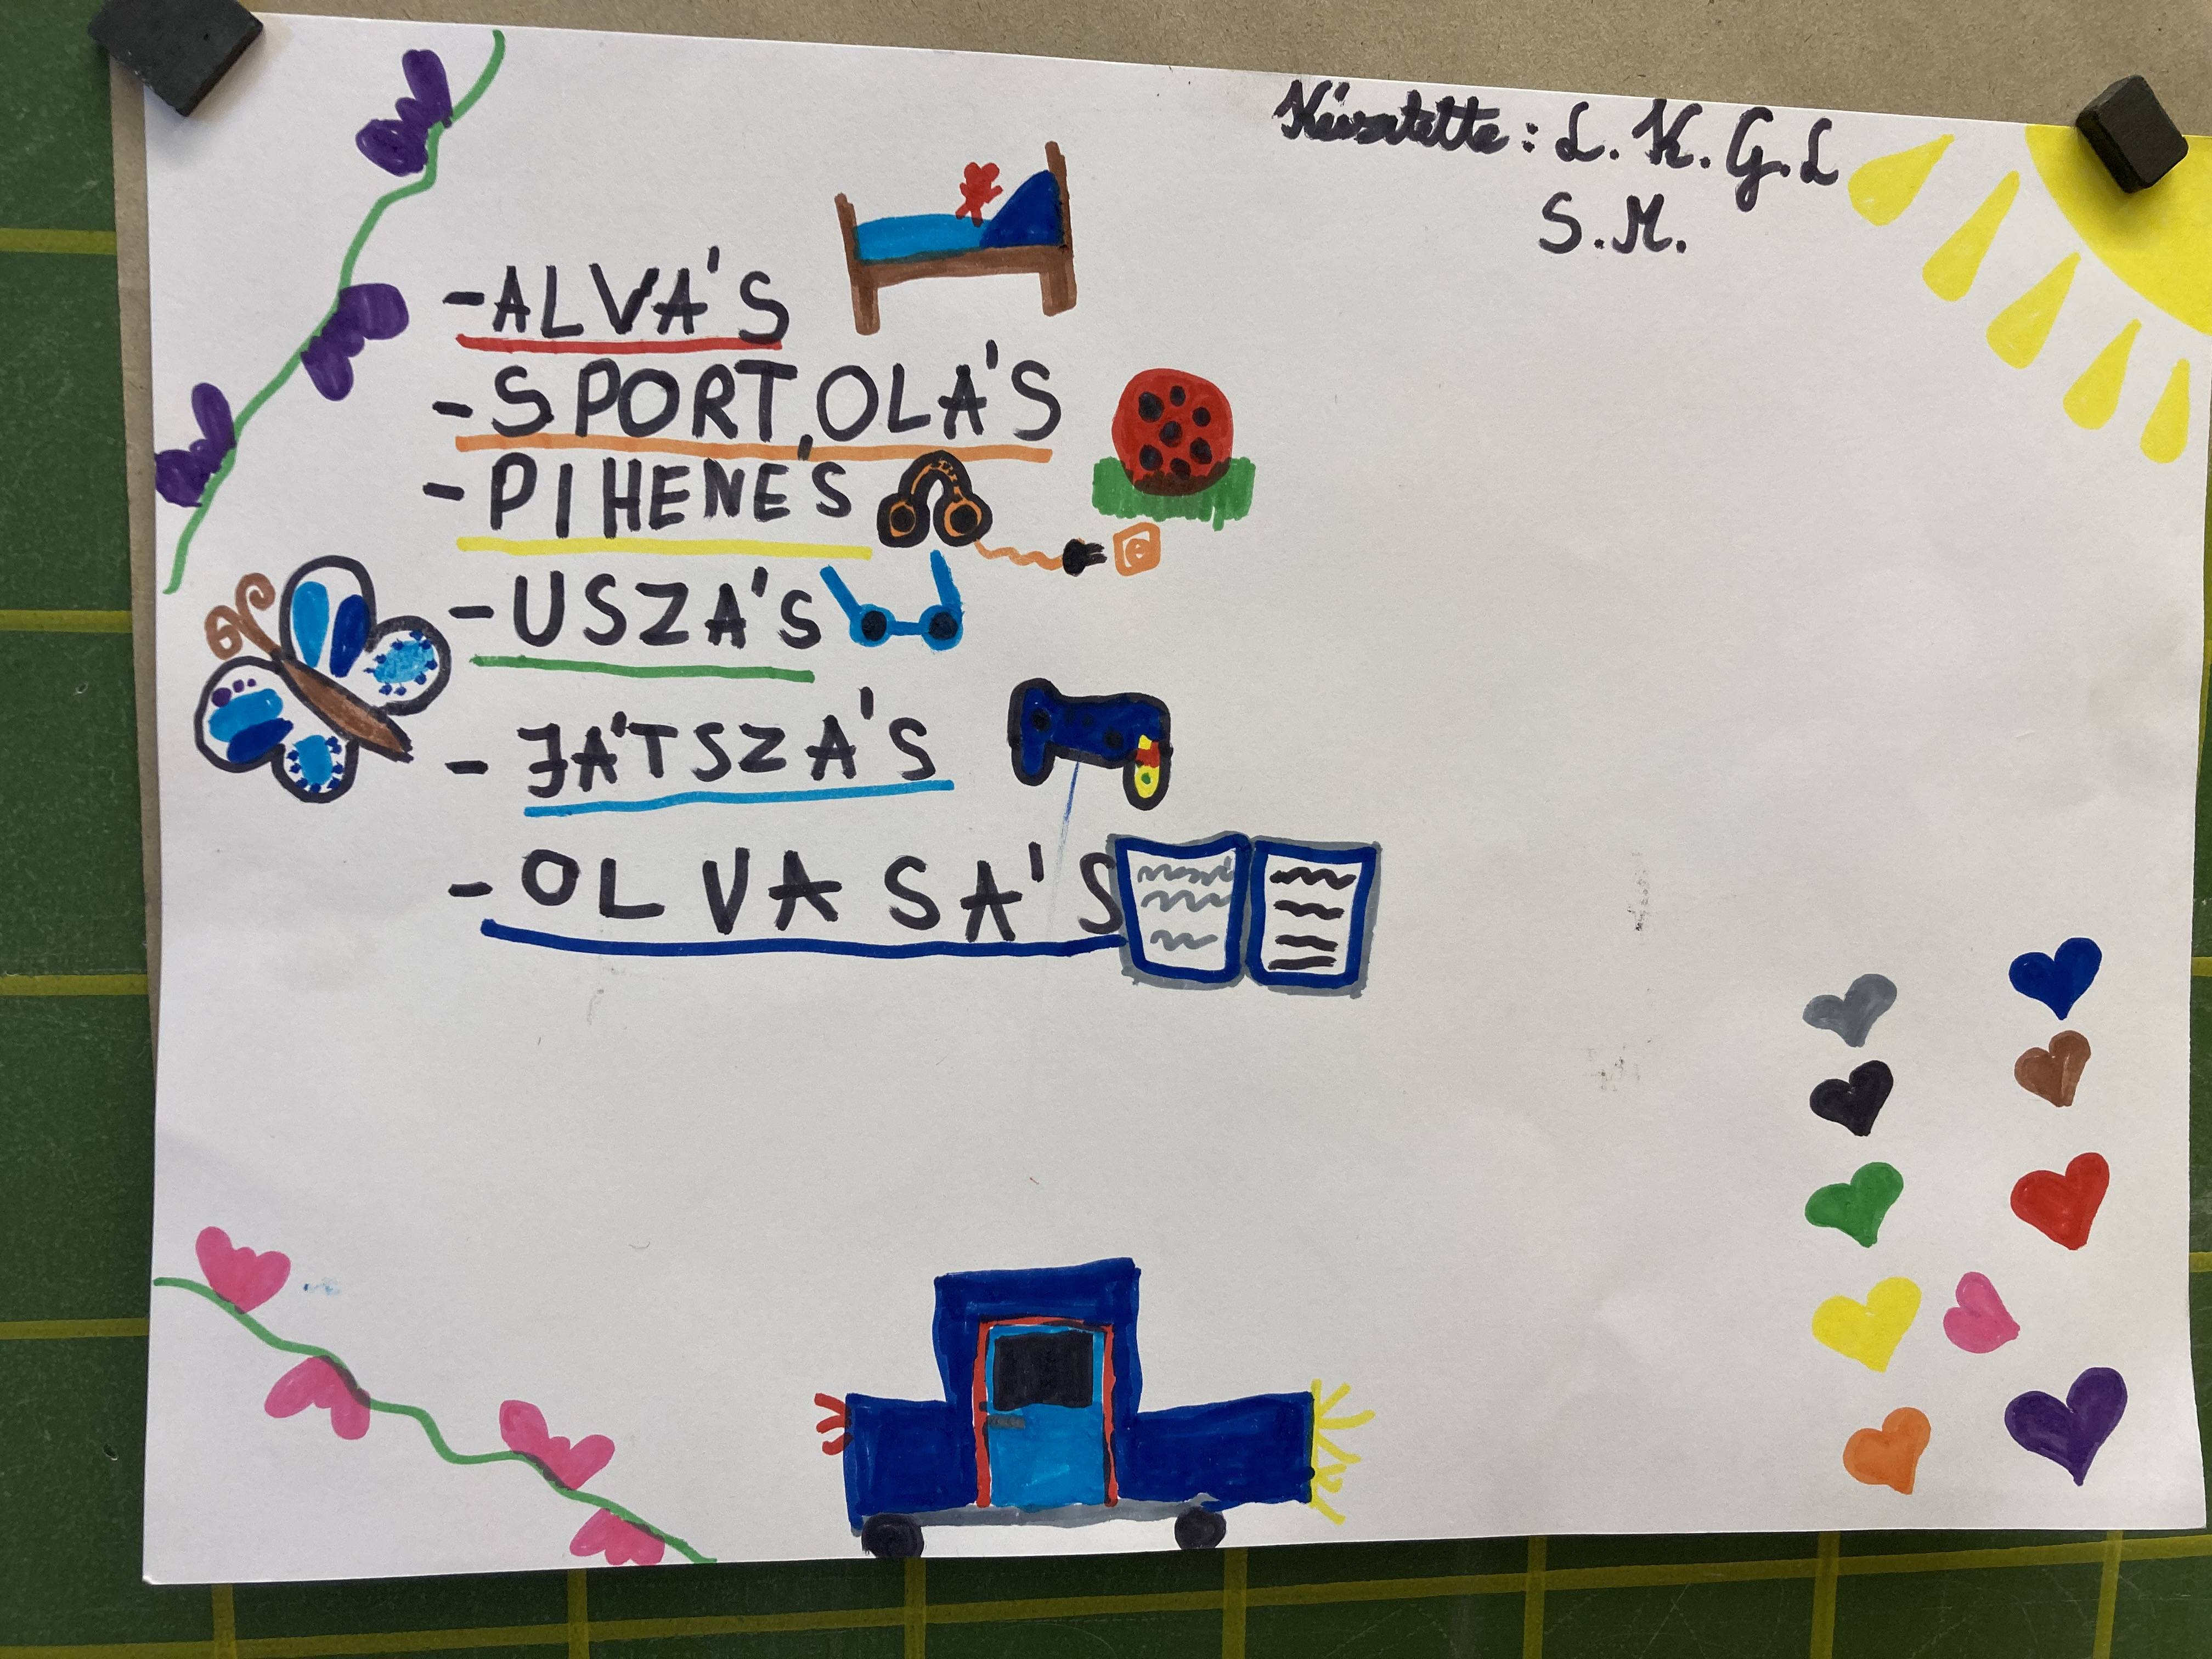 Készítette: L. K. G. L
S. M.
- ALVÁS
- SPORTOLÁS
- PIHENÉS
- USZÁS
- JÁTSZÁS
- OLVASÁS